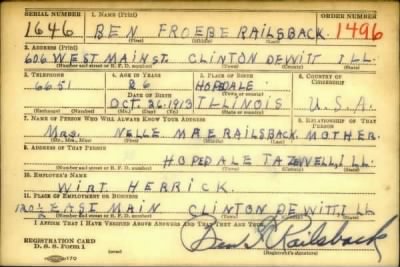 SERIAL NUMBER 1. NAME (Print) ORDER NUMBER
1646 BEN FROEBE RAILSBACK 1496
(First) (Middle) (Last)
2. ADDRESS (Print)
606 WEST MAIN ST. CLINTON DEWITT ILL.
(Number and street or R. F. D. number) (Town) (County) (State)
3. TELEPHONE 4. AGE IN YEARS 5. PLACE OF BIRTH 6. COUNTRY OF CITIZENSHIP
6651 26 HOPEDALE
DATE OF BIRTH (Town or county)
OCT. 26, 1913 ILLINOIS U.S.A.
(Exchange) (No.) (Mo.) (Day) (Yr.) (State or country)
7. NAME OF PERSON WHO WILL ALWAYS KNOW YOUR ADDRESS 8. RELATIONSHIP OF THAT PERSON
Mrs. NELLE MAE RAILSBACK MOTHER.
(Mr., Mrs., Miss) (First) (Middle) (Last)
9. ADDRESS OF THAT PERSON
HOPEDALE TAZEWELL, ILL.
(Number and street or R. F. D. number) (Town) (County) (State)
10. EMPLOYER'S NAME
WIRT HERRICK.
11. PLACE OF EMPLOYMENT OR BUSINESS
120½ EAST MAIN CLINTON DEWITT ILL
(Number and street or R. F. D. number) (Town) (County) (State)
I AFFIRM THAT I HAVE VERIFIED ABOVE ANSWERS AND THAT THEY ARE TRUE.
REGISTRATION CARD
D. S. S. Form 1
Ben F. Railsback
(Registrant's signature)